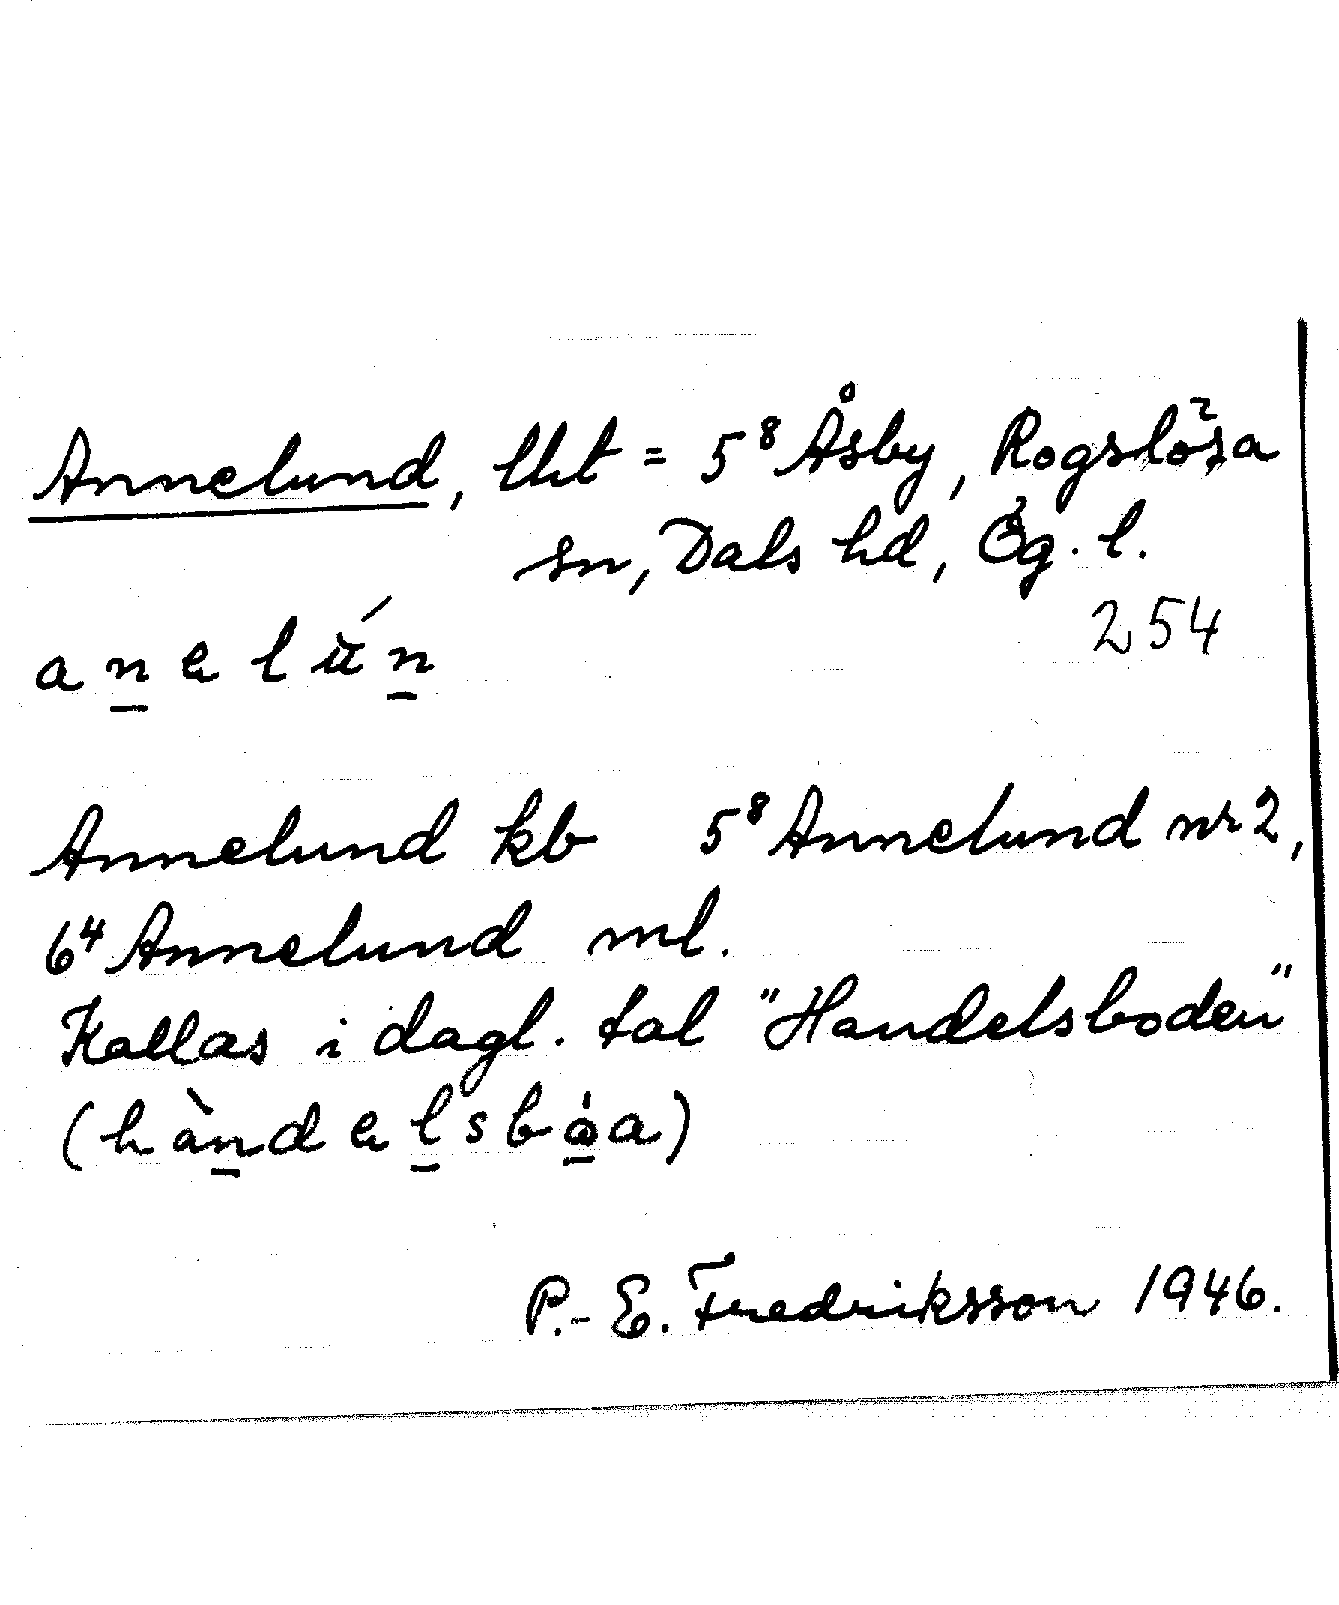 Annelund, lht = 5⁸ Åsby, Rogslösa
sn, Dals hd, Ög. l.
254
a n e l ŭ́ n
Annelund kb 5⁸ Annelund nr 2,
6⁴ Annelund ml.
Kallas i dagl. tal "Handelsboden"
(h à n d e l s b ω̇ a)
P.-E. Fredriksson 1946.